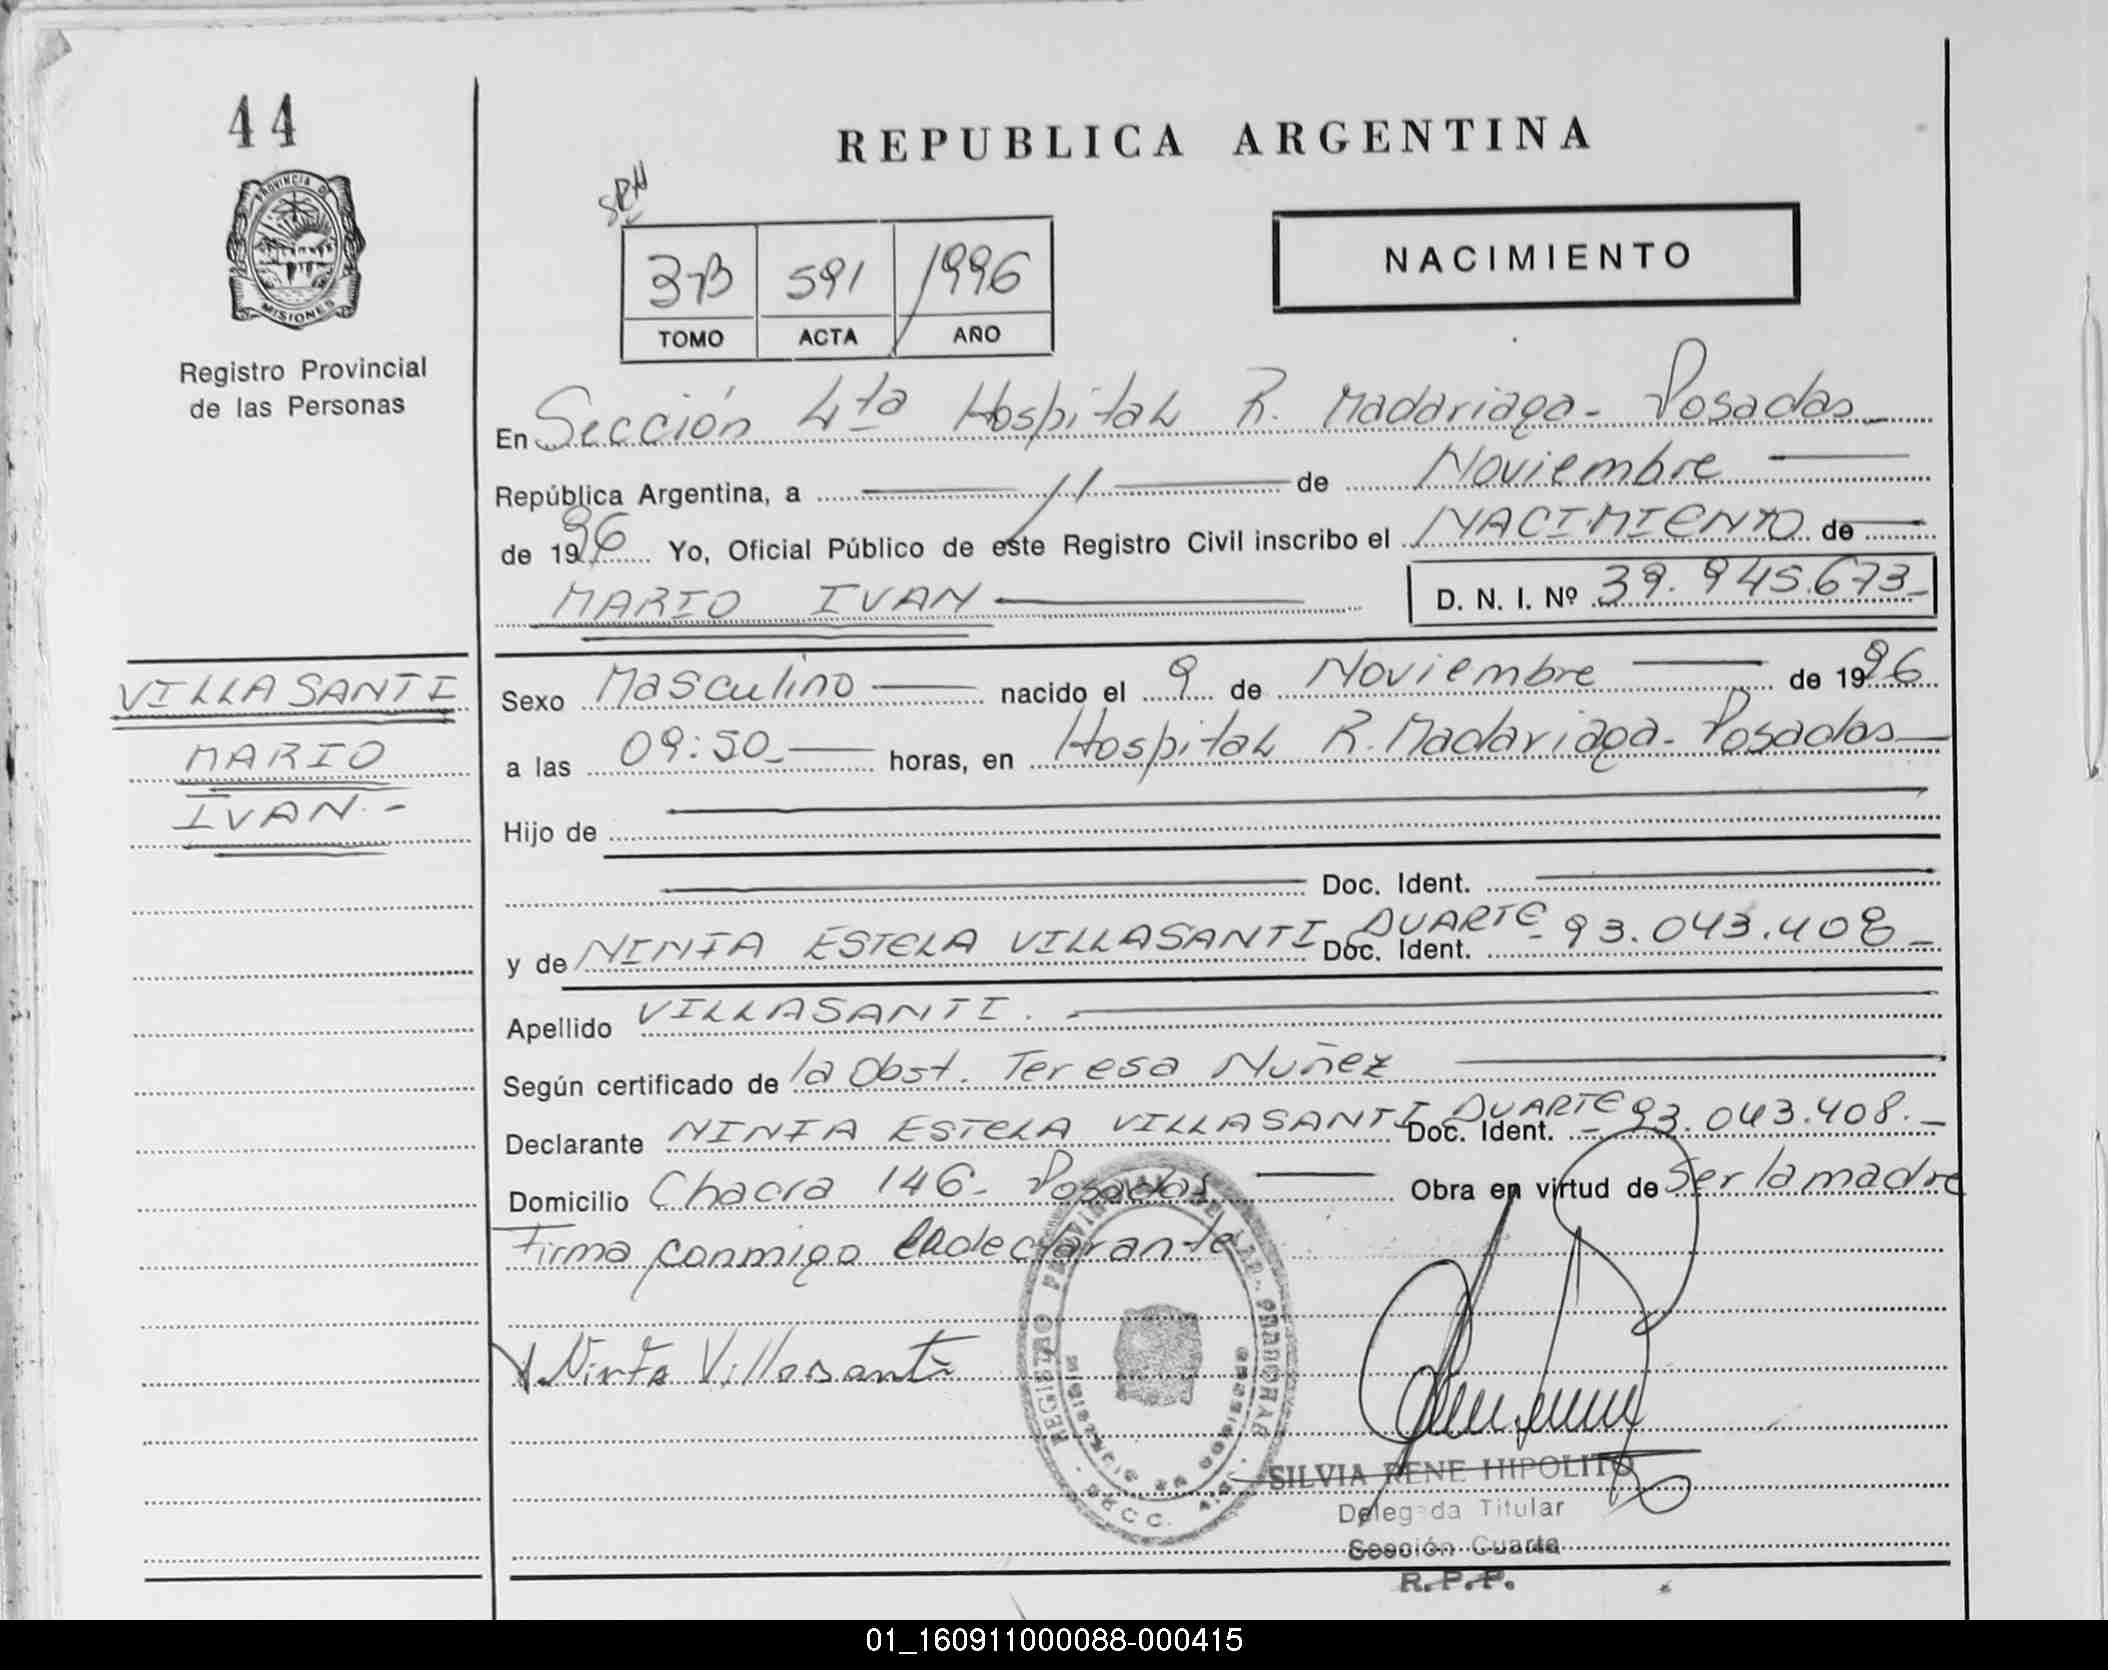 44
REPUBLICA ARGENTINA
PROVINCIA DE
MISIONES
NACIMIENTO
591 1996
TOMO ACTA AÑO
Registro Provincial
de las Personas
En Sección 4ta Hospital R. Madariaga - Posadas
República Argentina, a 11 de Noviembre
de 1996 Yo, Oficial Público de este Registro Civil inscribo el NACIMIENTO de
MARIO IVAN D. N. I. Nº 39.945.673
VILLASANTI
MARIO
IVAN.-
Sexo Masculino nacido el 9 de Noviembre de 1996
a las 09:50 horas, en Hospital R. Madariaga - Posadas
Hijo de
Doc. Ident.
y de NINFA ESTELA VILLASANTI DUARTE Doc. Ident. 93.043.408
Apellido VILLASANTI.
Según certificado de la Obst. Teresa Nuñez
Declarante NINFA ESTELA VILLASANTI DUARTE Doc. Ident. 93.043.408.
Domicilio Chacra 146 - Posadas Obra en virtud de Ser la madre
Firma conmigo la declarante
Ninfa Villasanti
REGISTRO PROVINCIAL DE LAS PERSONAS
SILVIA RENE HIPOLITO
Delegada Titular
Sección Cuarta
R.P.P.
01_160911000088-000415